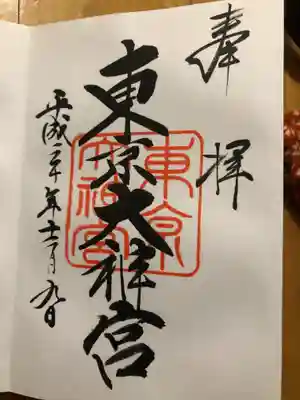 奉拝
東京大神宮
平成二十年十一月九日
東京
大神宮